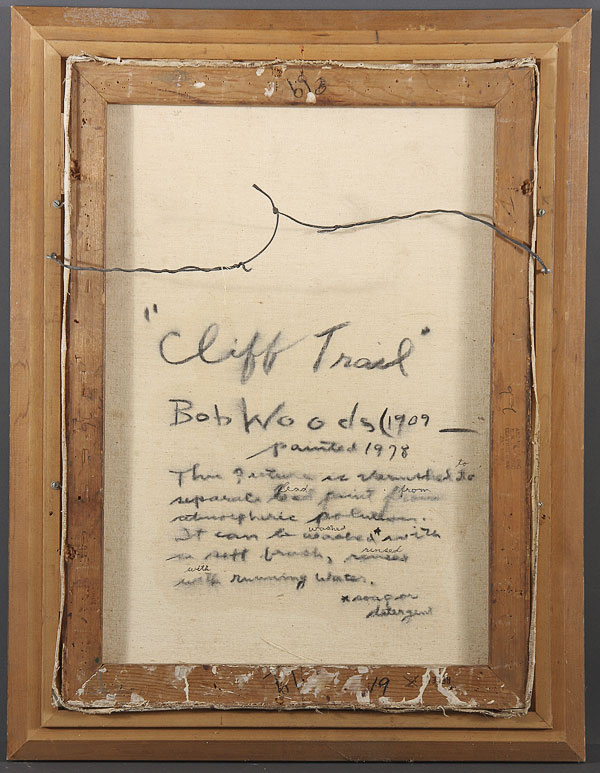 "Cliff Trail"
Bob Woods (1909 —
painted 1978
This picture is varnished to to
separate lead lead paint from from
atmospheric pollution.
It can be washed washed * with
a soft brush, rinsed rinsed
with with running water.
* soap or
detergent
19